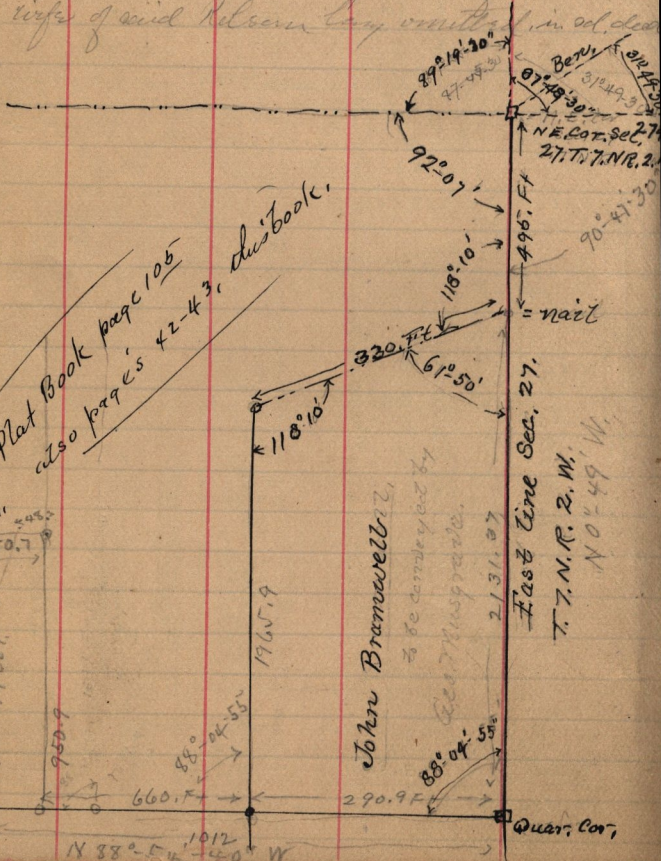 wife of said
in sd. deed
89°-19'-30"
Ber,
87°-49'-30"
31°49'-30
N E. Cor. Sec,
27. T. 7. N R. 2.
92°-07'
495. Ft
90°-47'-30"
118°-10'
= nail
330. Ft
61°-50'
118°10'
Plat Book page 105
also pages 42-43, this book.
East line Sec. 27.
T. 7. N. R. 2. W.
N 0°-49' W.
2131.37
1965.9
John Bramwell
to be conveyed by
Geo Musgrave.
950.9
88°-04'-55"
88°-04' 55"
660. Ft
290.9 Ft
Quar. Cor.
1012
N 88°-54'-40" W